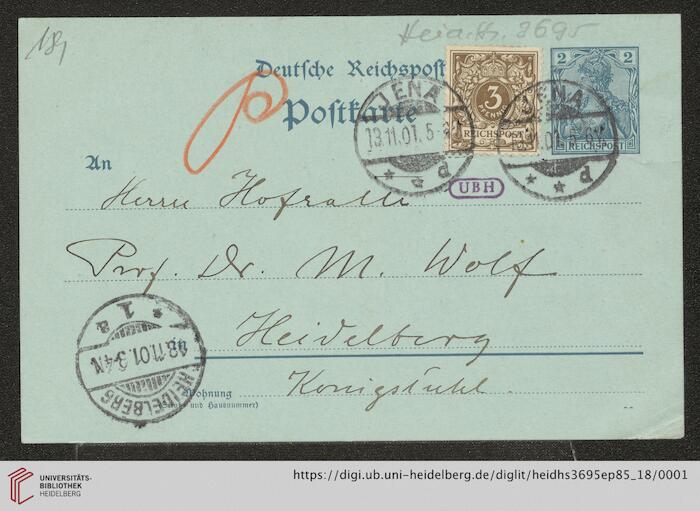 181
Heid. Hs. 3695
Deutsche Reichspost
Postkarte
3
REICHSPOST
2 2
REICHSPOST
JENA
13.11.01. 5-6V
* * p
JENA
13.11.01. 5-6V
* * p
UBH
An
Herrn Hofrath
Prof. Dr. M. Wolf
in Heidelberg
Wohnung
(Straße und Hausnummer)
Königstuhl.
HEIDELBERG
13.11.01.3-4N
* 1 a
UNIVERSITÄTS-
BIBLIOTHEK
HEIDELBERG
https://digi.ub.uni-heidelberg.de/diglit/heidhs3695ep85_18/0001